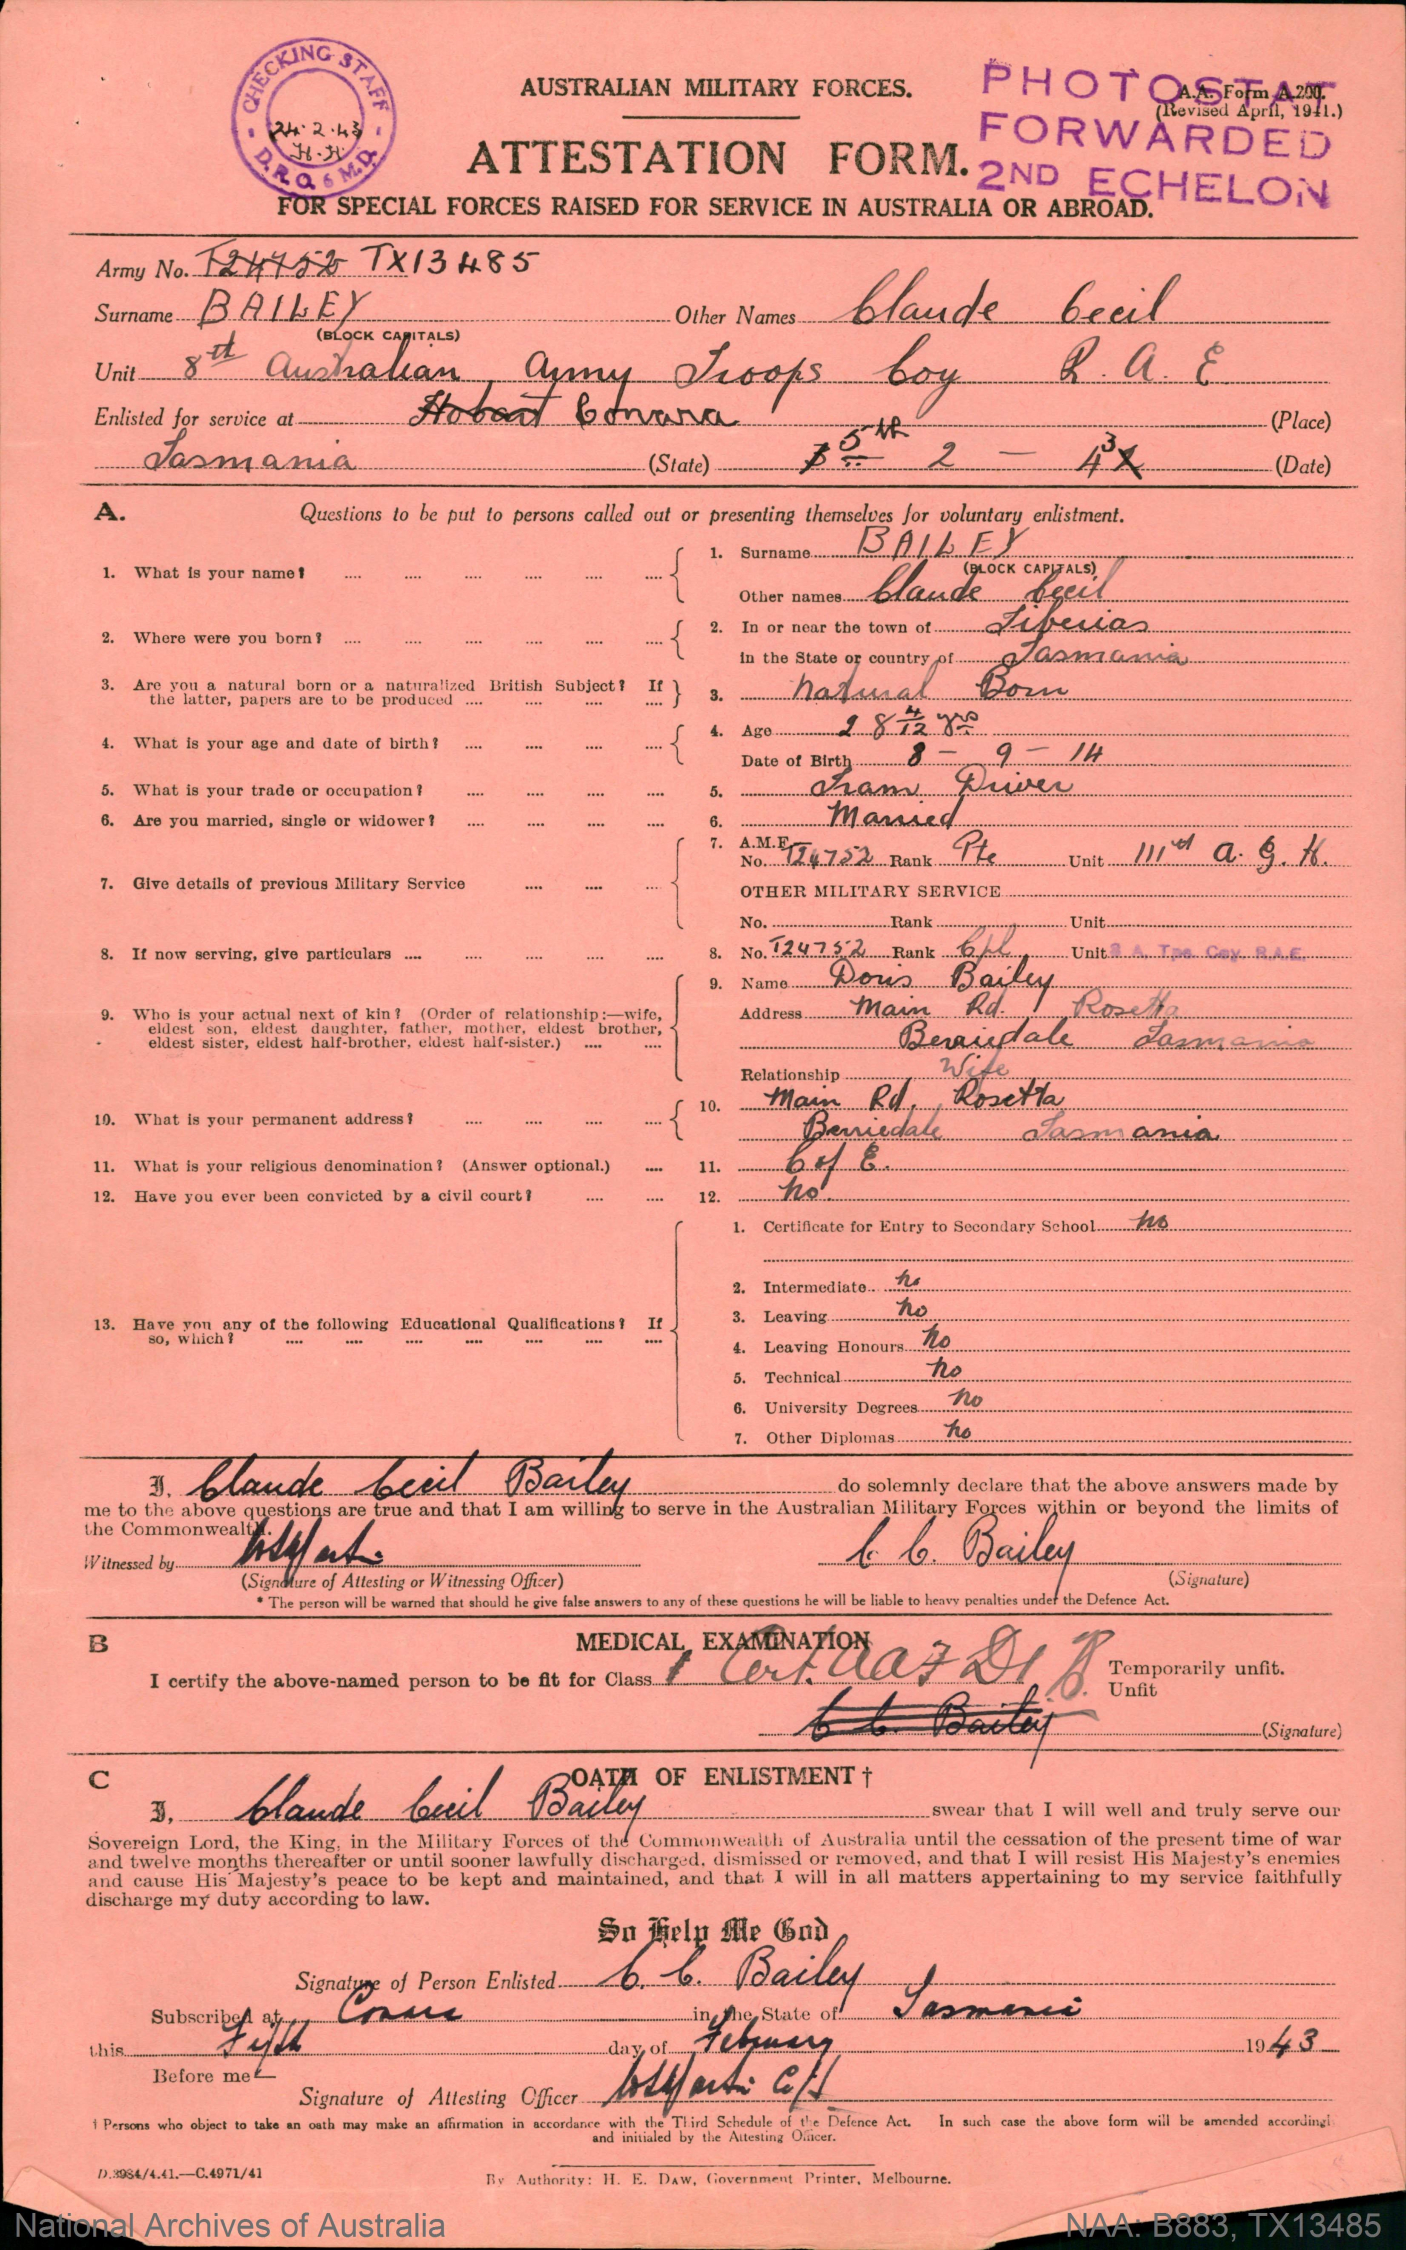 CHECKING STAFF
24.2.43
D.R.O. 6 M.D.
AUSTRALIAN MILITARY FORCES.
PHOTOSTAT
FORWARDED
2ND ECHELON
A.A. Form A.200.
(Revised April, 1941.)
ATTESTATION FORM.
FOR SPECIAL FORCES RAISED FOR SERVICE IN AUSTRALIA OR ABROAD.
Army No. T24752 TX13485
Surname BAILEY Other Names Claude Cecil
(BLOCK CAPITALS)
Unit 8th Australian Army Troops Coy R.A.E
Enlisted for service at Hobart Conara (Place)
Tasmania (State) 5th 2 - 43 (Date)
A. Questions to be put to persons called out or presenting themselves for voluntary enlistment.
1. What is your name? 1. Surname BAILEY
(BLOCK CAPITALS)
Other names Claude Cecil
2. Where were you born? 2. In or near the town of Tiberias
in the State or country of Tasmania
3. Are you a natural born or a naturalized British Subject? If
the latter, papers are to be produced 3. Natural Born
4. What is your age and date of birth? 4. Age 28 4/12 yrs
Date of Birth 8 - 9 - 14
5. What is your trade or occupation? 5. Tram Driver
6. Are you married, single or widower? 6. Married
7. Give details of previous Military Service 7. A.M.F.
No. T24752 Rank Pte Unit 111th A.G.H.
OTHER MILITARY SERVICE
No. Rank Unit
8. If now serving, give particulars 8. No. T24752 Rank Cpl Unit 8 A. Tps Coy R.A.E.
9. Who is your actual next of kin? (Order of relationship:—wife,
eldest son, eldest daughter, father, mother, eldest brother,
eldest sister, eldest half-brother, eldest half-sister.)
9. Name Doris Bailey
Address Main Rd. Rosetta
Berriedale Tasmania
Relationship Wife
10. What is your permanent address? 10. Main Rd. Rosetta
Berriedale Tasmania
11. What is your religious denomination? (Answer optional.) 11. C of E.
12. Have you ever been convicted by a civil court? 12. No.
13. Have you any of the following Educational Qualifications? If
so, which?
1. Certificate for Entry to Secondary School No
2. Intermediate No
3. Leaving No
4. Leaving Honours No
5. Technical No
6. University Degrees No
7. Other Diplomas No
I, Claude Cecil Bailey do solemnly declare that the above answers made by
me to the above questions are true and that I am willing to serve in the Australian Military Forces within or beyond the limits of
the Commonwealth.
Witnessed by C. C. Bailey
(Signature of Attesting or Witnessing Officer) (Signature)
* The person will be warned that should he give false answers to any of these questions he will be liable to heavy penalties under the Defence Act.
B MEDICAL EXAMINATION
I certify the above-named person to be fit for Class 1 Cert. AAF D1 Temporarily unfit.
Unfit
C. C. Bailey (Signature)
C OATH OF ENLISTMENT †
I, Claude Cecil Bailey swear that I will well and truly serve our
Sovereign Lord, the King, in the Military Forces of the Commonwealth of Australia until the cessation of the present time of war
and twelve months thereafter or until sooner lawfully discharged, dismissed or removed, and that I will resist His Majesty's enemies
and cause His Majesty's peace to be kept and maintained, and that I will in all matters appertaining to my service faithfully
discharge my duty according to law.
So Help Me God
Signature of Person Enlisted C. C. Bailey
Subscribed at Conara in the State of Tasmania
this Fifth day of February 1943
Before me—
Signature of Attesting Officer
† Persons who object to take an oath may make an affirmation in accordance with the Third Schedule of the Defence Act. In such case the above form will be amended accordingl
and initialed by the Attesting Officer.
D.3984/4.41.—C.4971/41
By Authority: H. E. Daw, Government Printer, Melbourne.
National Archives of Australia NAA: B883, TX13485